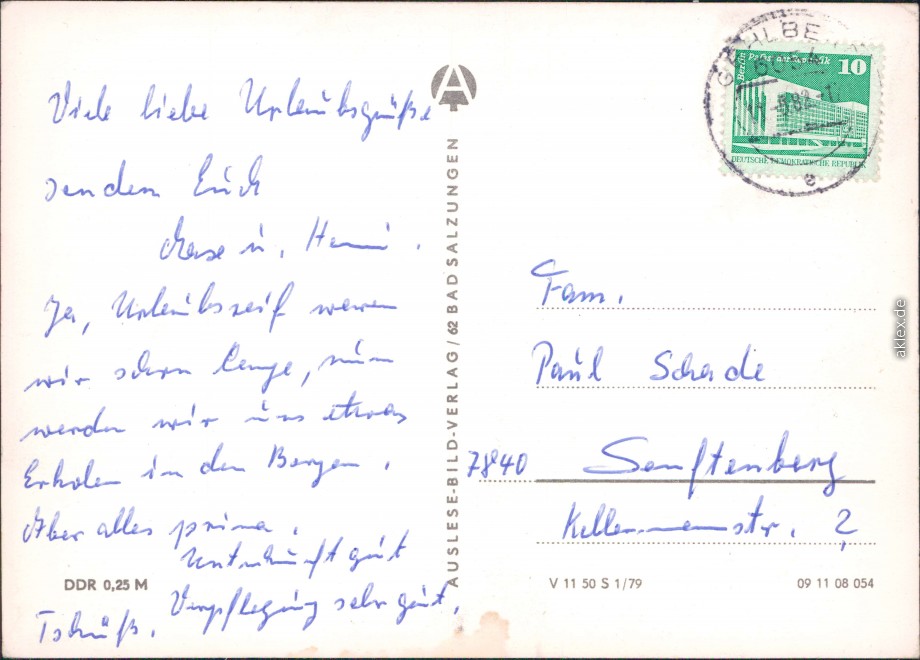 Viele liebe Urlaubsgrüße
senden Euch
u. Hanni.
Ja, Urlaubszeit waren
wir schon lange, nun
werden wir uns etwas
Erholen in den Bergen.
Aber alles prima.
Unterkunft gut
Verpflegung sehr gut,
Tschüß.
DDR 0,25 M
AUSLESE-BILD-VERLAG / 62 BAD SALZUNGEN
10
Berlin
DEUTSCHE DEMOKRATISCHE REPUBLIK
Fam.
Paul Schade
7840 Senftenberg
V 11 50 S 1/79
09 11 08 054
aklex.de